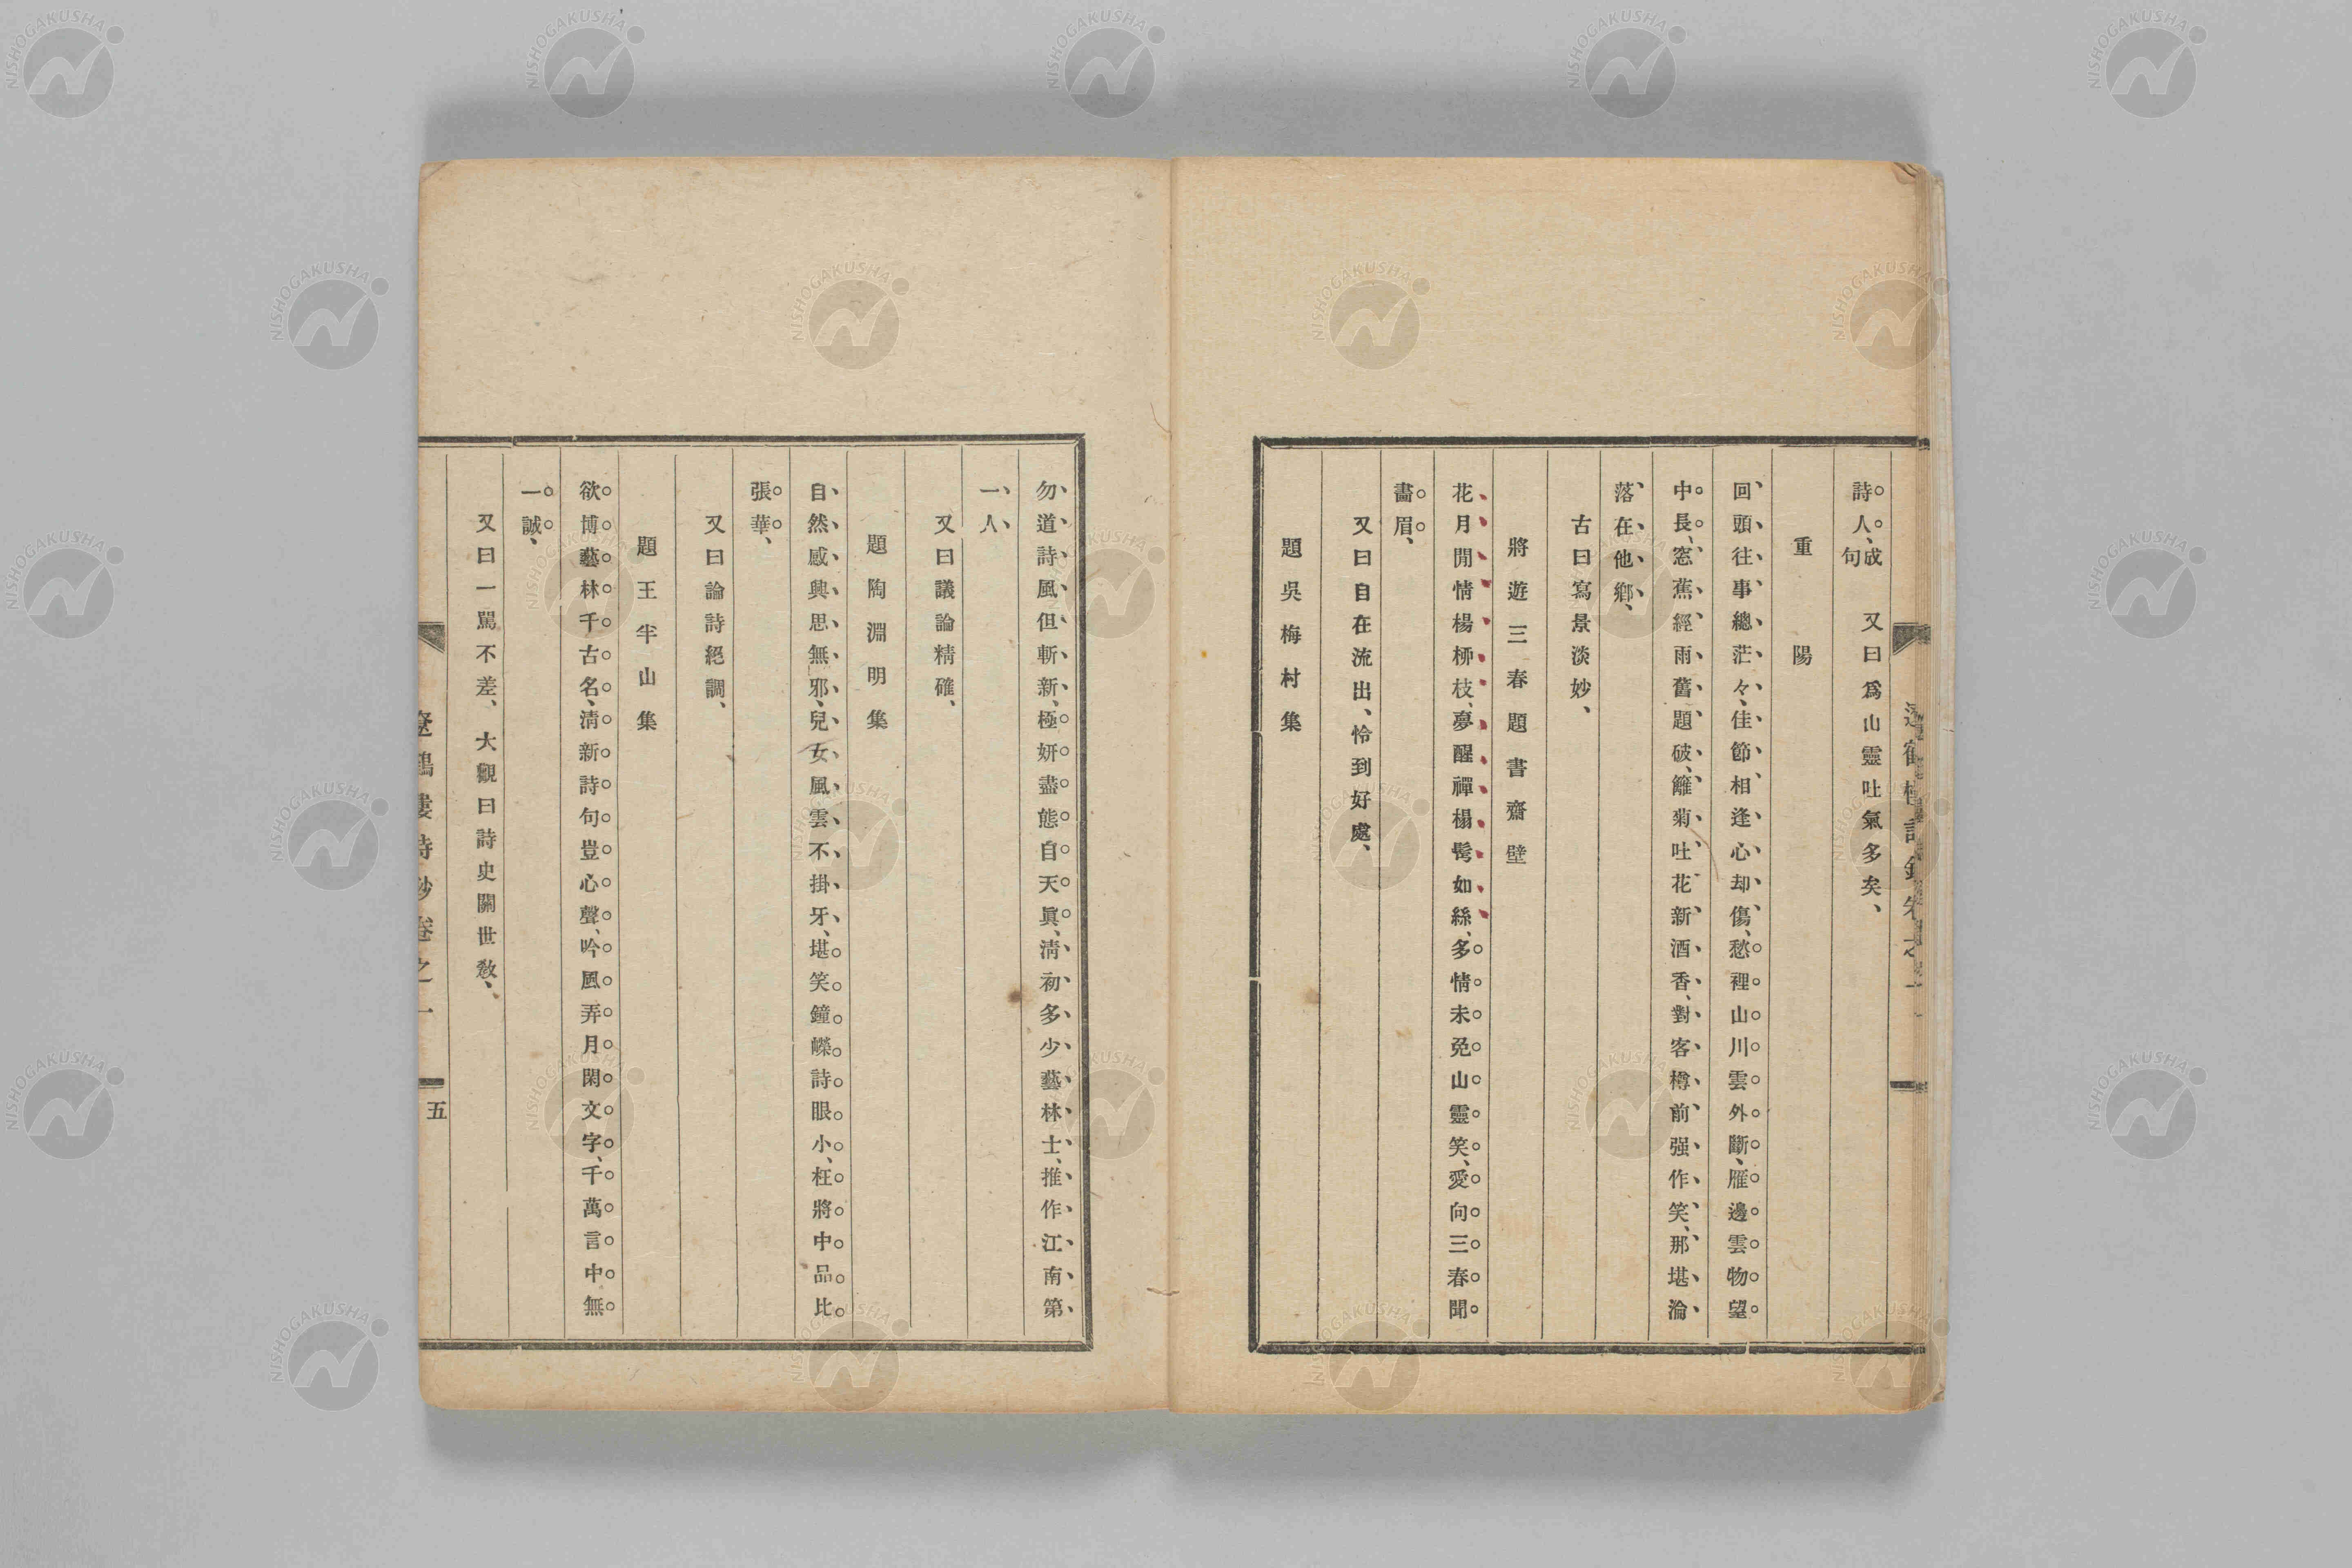 詩人、成句 又曰爲山靈吐氣多矣、
重陽
回頭往事總茫々、佳節相逢心却傷、愁裡山川雲外斷、雁邊雲物望
中長、窓蕉經雨舊題破、籬菊吐花新酒香、對客樽前强作笑、那堪淪
落在他鄉、
古曰寫景淡妙、
將遊三春題書齋壁
花月閒情楊柳枝、夢醒禪榻髩如絲、多情未免山靈笑、愛向三春鬪
畵眉、
又曰自在流出、恰到好處、
題吳梅村集
勿道詩風但斬新、極妍盡態自天眞、淸初多少藝林士、推作江南第
一人、
又曰議論精確、
題陶淵明集
自然感興思無邪、兒女風雲不掛牙、堪笑鐘嶸詩眼小、枉將中品比
張華、
又曰論詩絕調、
題王半山集
欲博藝林千古名、淸新詩句豈心聲、吟風弄月閑文字、千萬言中無
一誠、
又曰一罵不差、大觀曰詩史關世敎、
遼鶴樓詩鈔卷之一
五
NISHOGAKUSHA